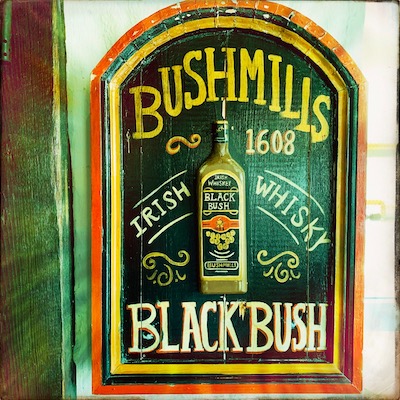 BUSHMILLS
1608
IRISH WHISKY
IRISH
WHISKEY
BLACK
BUSH
BUSHMILLS
BLACK BUSH